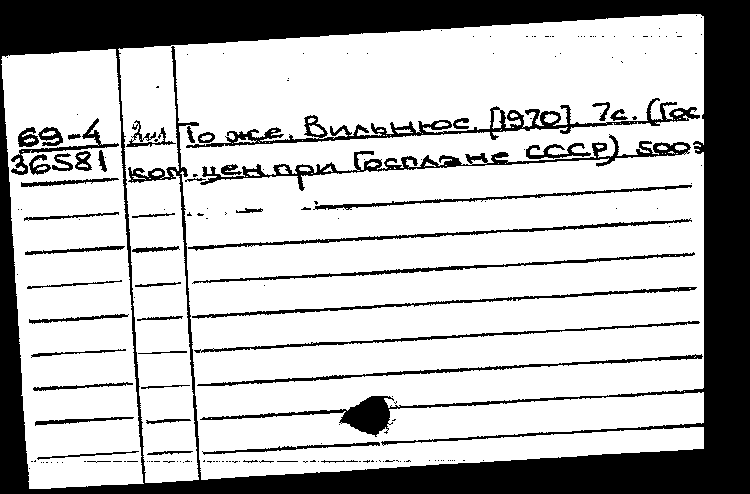 69-4 2ил То же. Вильнюс. [1970]. 7с. (Гос.
36581 ком. цен при Госплане СССР). 500э